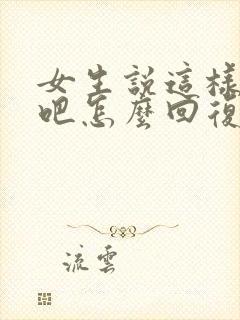 女生説這樣
吧怎麼回復
流雲